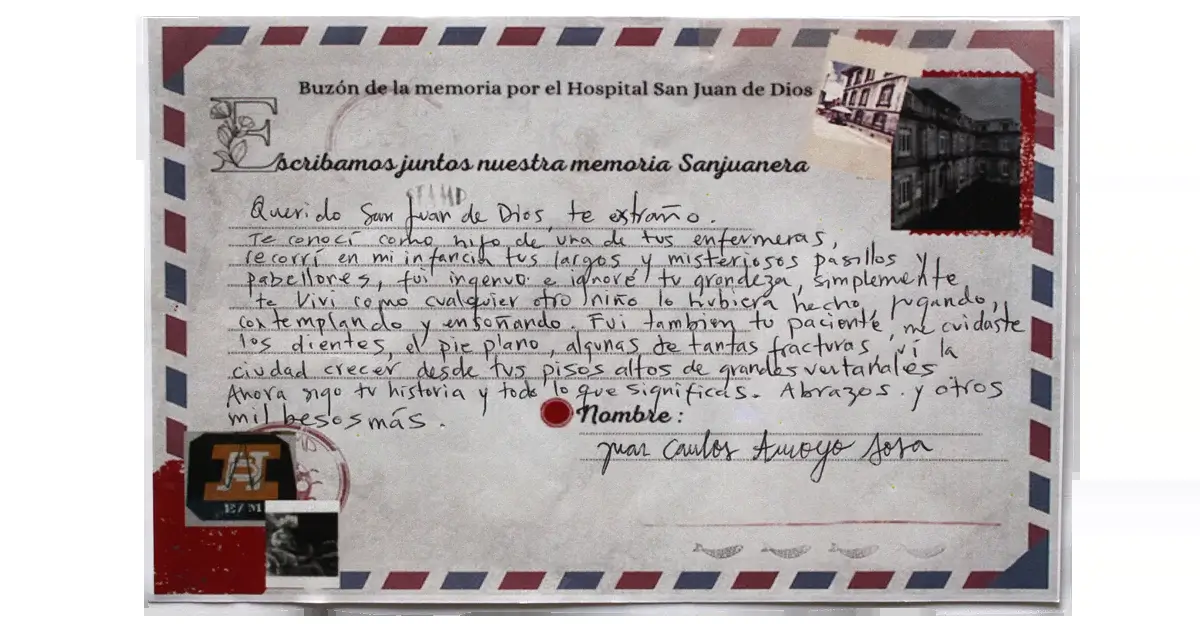 Buzón de la memoria por el Hospital San Juan de Dios
Escribamos juntos nuestra memoria Sanjuanera
STAMP
Querido San Juan de Dios, te extraño.
Te conocí como hijo de una de tus enfermeras,
recorrí en mi infancia tus largos y misteriosos pasillos y
pabellones, fui ingenuo e ignoré tu grandeza, simplemente
te viví como cualquier otro niño lo hubiera hecho, jugando,
contemplando y ensoñando. Fui tambien tu paciente, me cuidaste
los dientes, el pie plano, algunas de tantas fracturas, ví la
ciudad crecer desde tus pisos altos de grandes ventanales
Ahora sigo tu historia y todo lo que significas. Abrazos y otros
mil besos más.
Nombre:
Juan Carlos Arroyo Sosa
E/M